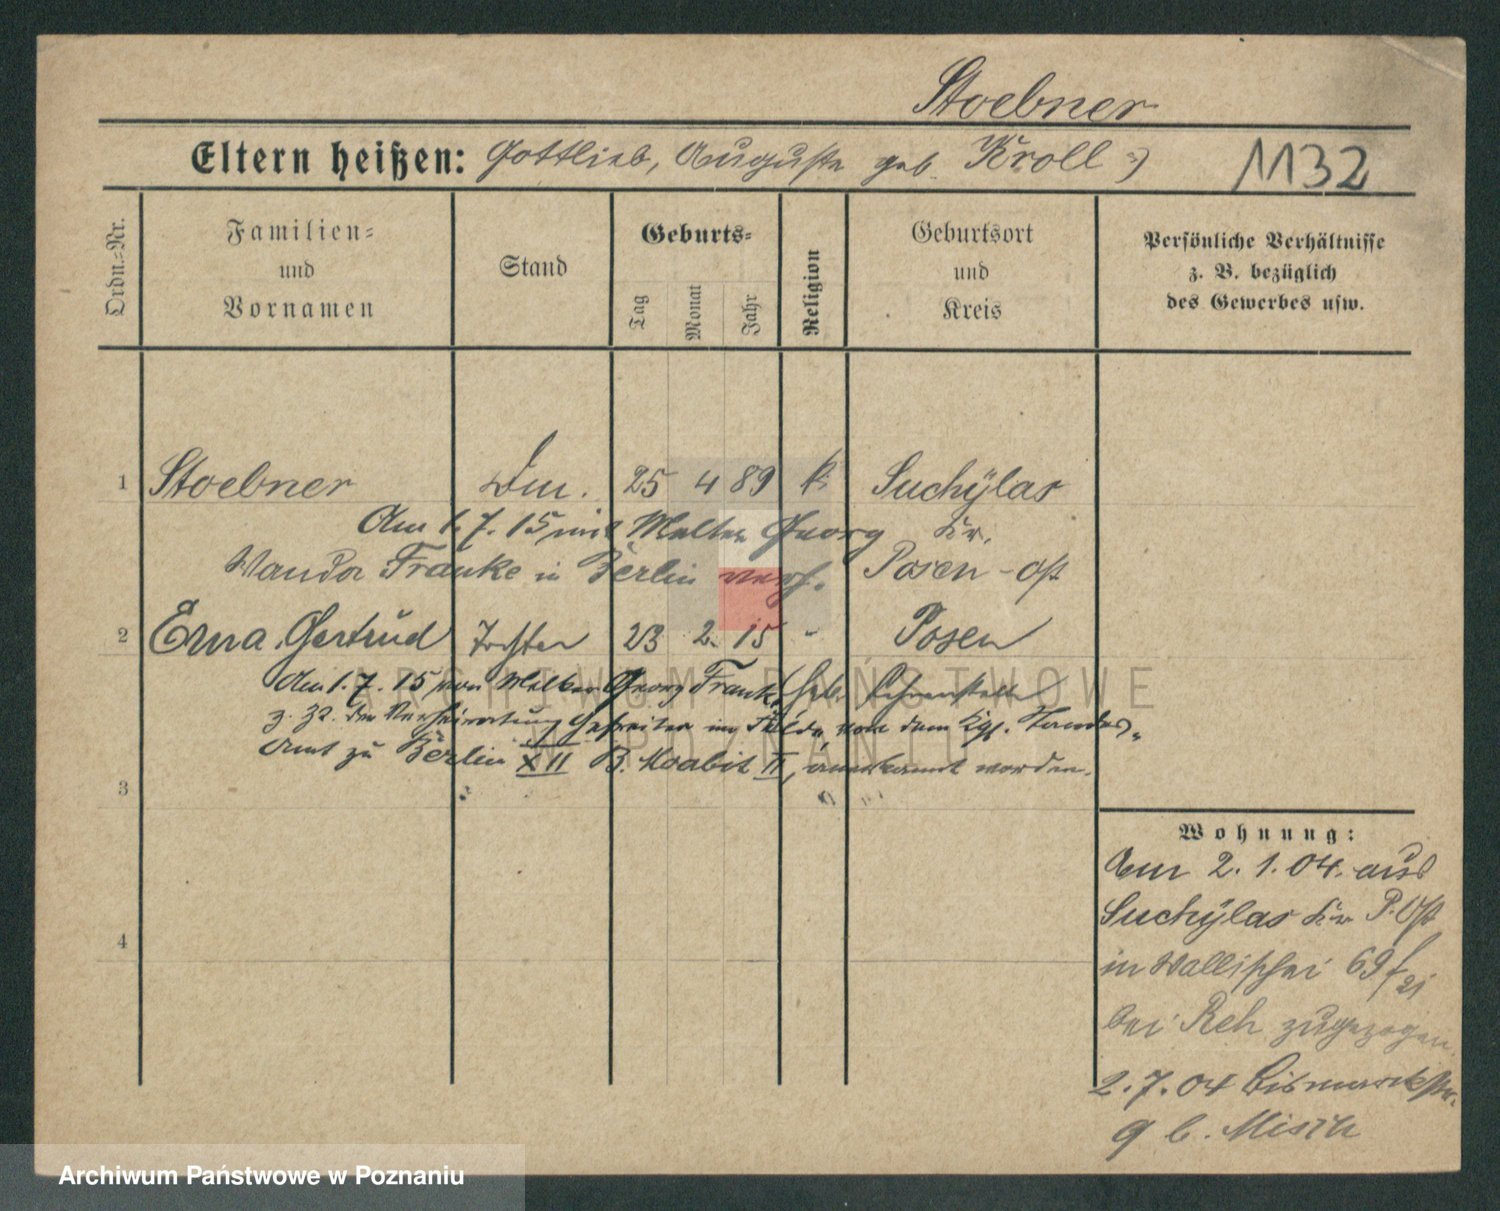 Stoebner
Eltern heißen: Gottlieb, Auguste geb. Kroll
1132
Ordn.-Nr.
Familien-
und
Vornamen
Stand
Geburts-
Tag
Monat
Jahr
Religion
Geburtsort
und
Kreis
Persönliche Verhältnisse
z. B. bezüglich
des Gewerbes usw.
1 Stoebner Dm. 25 4 89 k. Suchÿlas
Am 1. 7. 15 mit Georg Kr.
Wanda Franke in Berlin verh. Posen-Ost
2 Erna Gertrud Tochter 23 2. 15 " Posen
Am 1. 7. 15 von Georg Franke
z. Zt. der Verheiratung Gefreiter im Felde, vor dem Kgl. Standes-
Amt zu Berlin XII B. Moabit II, anerkannt worden.
3
4
Wohnung:
Am 2. 1. 04. aus
Suchÿlas Kr. P. Ost
in Wallischei 69
bei Reh zugezogen
2. 7. 04 Bismarckstr.
9 b. Misch
ARCHIWUM PAŃSTWOWE
W POZNANIU
Archiwum Państwowe w Poznaniu